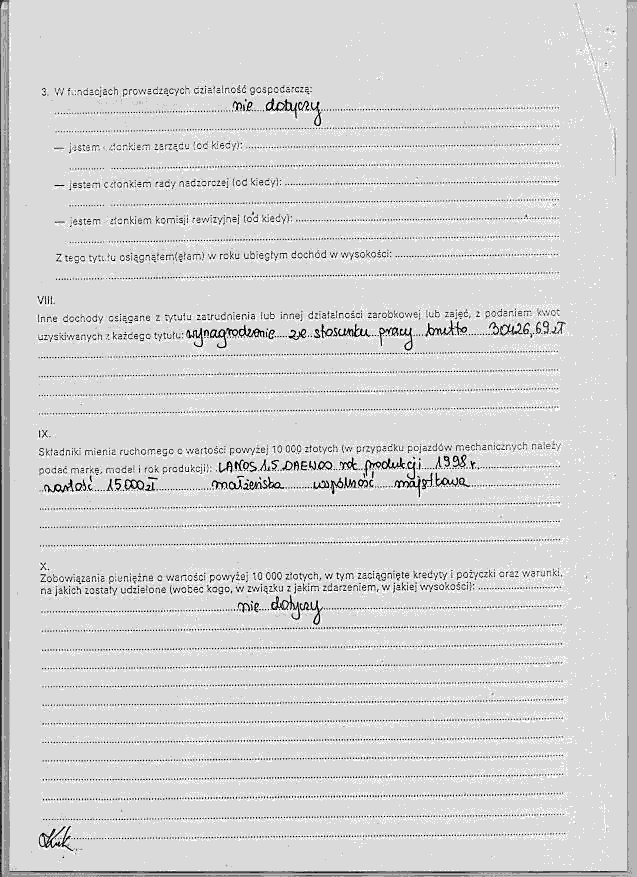 3. W fundacjach prowadzących działalność gospodarczą:
nie dotyczy
— jestem członkiem zarządu (od kiedy):
— jestem członkiem rady nadzorczej (od kiedy):
— jestem członkiem komisji rewizyjnej (od kiedy):
Z tego tytułu osiągnąłem(ęłam) w roku ubiegłym dochód w wysokości:
VIII.
Inne dochody osiągane z tytułu zatrudnienia lub innej działalności zarobkowej lub zajęć, z podaniem kwot
uzyskiwanych z każdego tytułu: wynagrodzenie ze stosunku pracy brutto 30426,69 zł
IX.
Składniki mienia ruchomego o wartości powyżej 10 000 złotych (w przypadku pojazdów mechanicznych należy
podać markę, model i rok produkcji): LANOS 1,5 DAEWOO rok produkcji 1998 r.
wartość 15.000 zł małżeńska wspólność majątkowa
X.
Zobowiązania pieniężne o wartości powyżej 10 000 złotych, w tym zaciągnięte kredyty i pożyczki oraz warunki,
na jakich zostały udzielone (wobec kogo, w związku z jakim zdarzeniem, w jakiej wysokości):
nie dotyczy